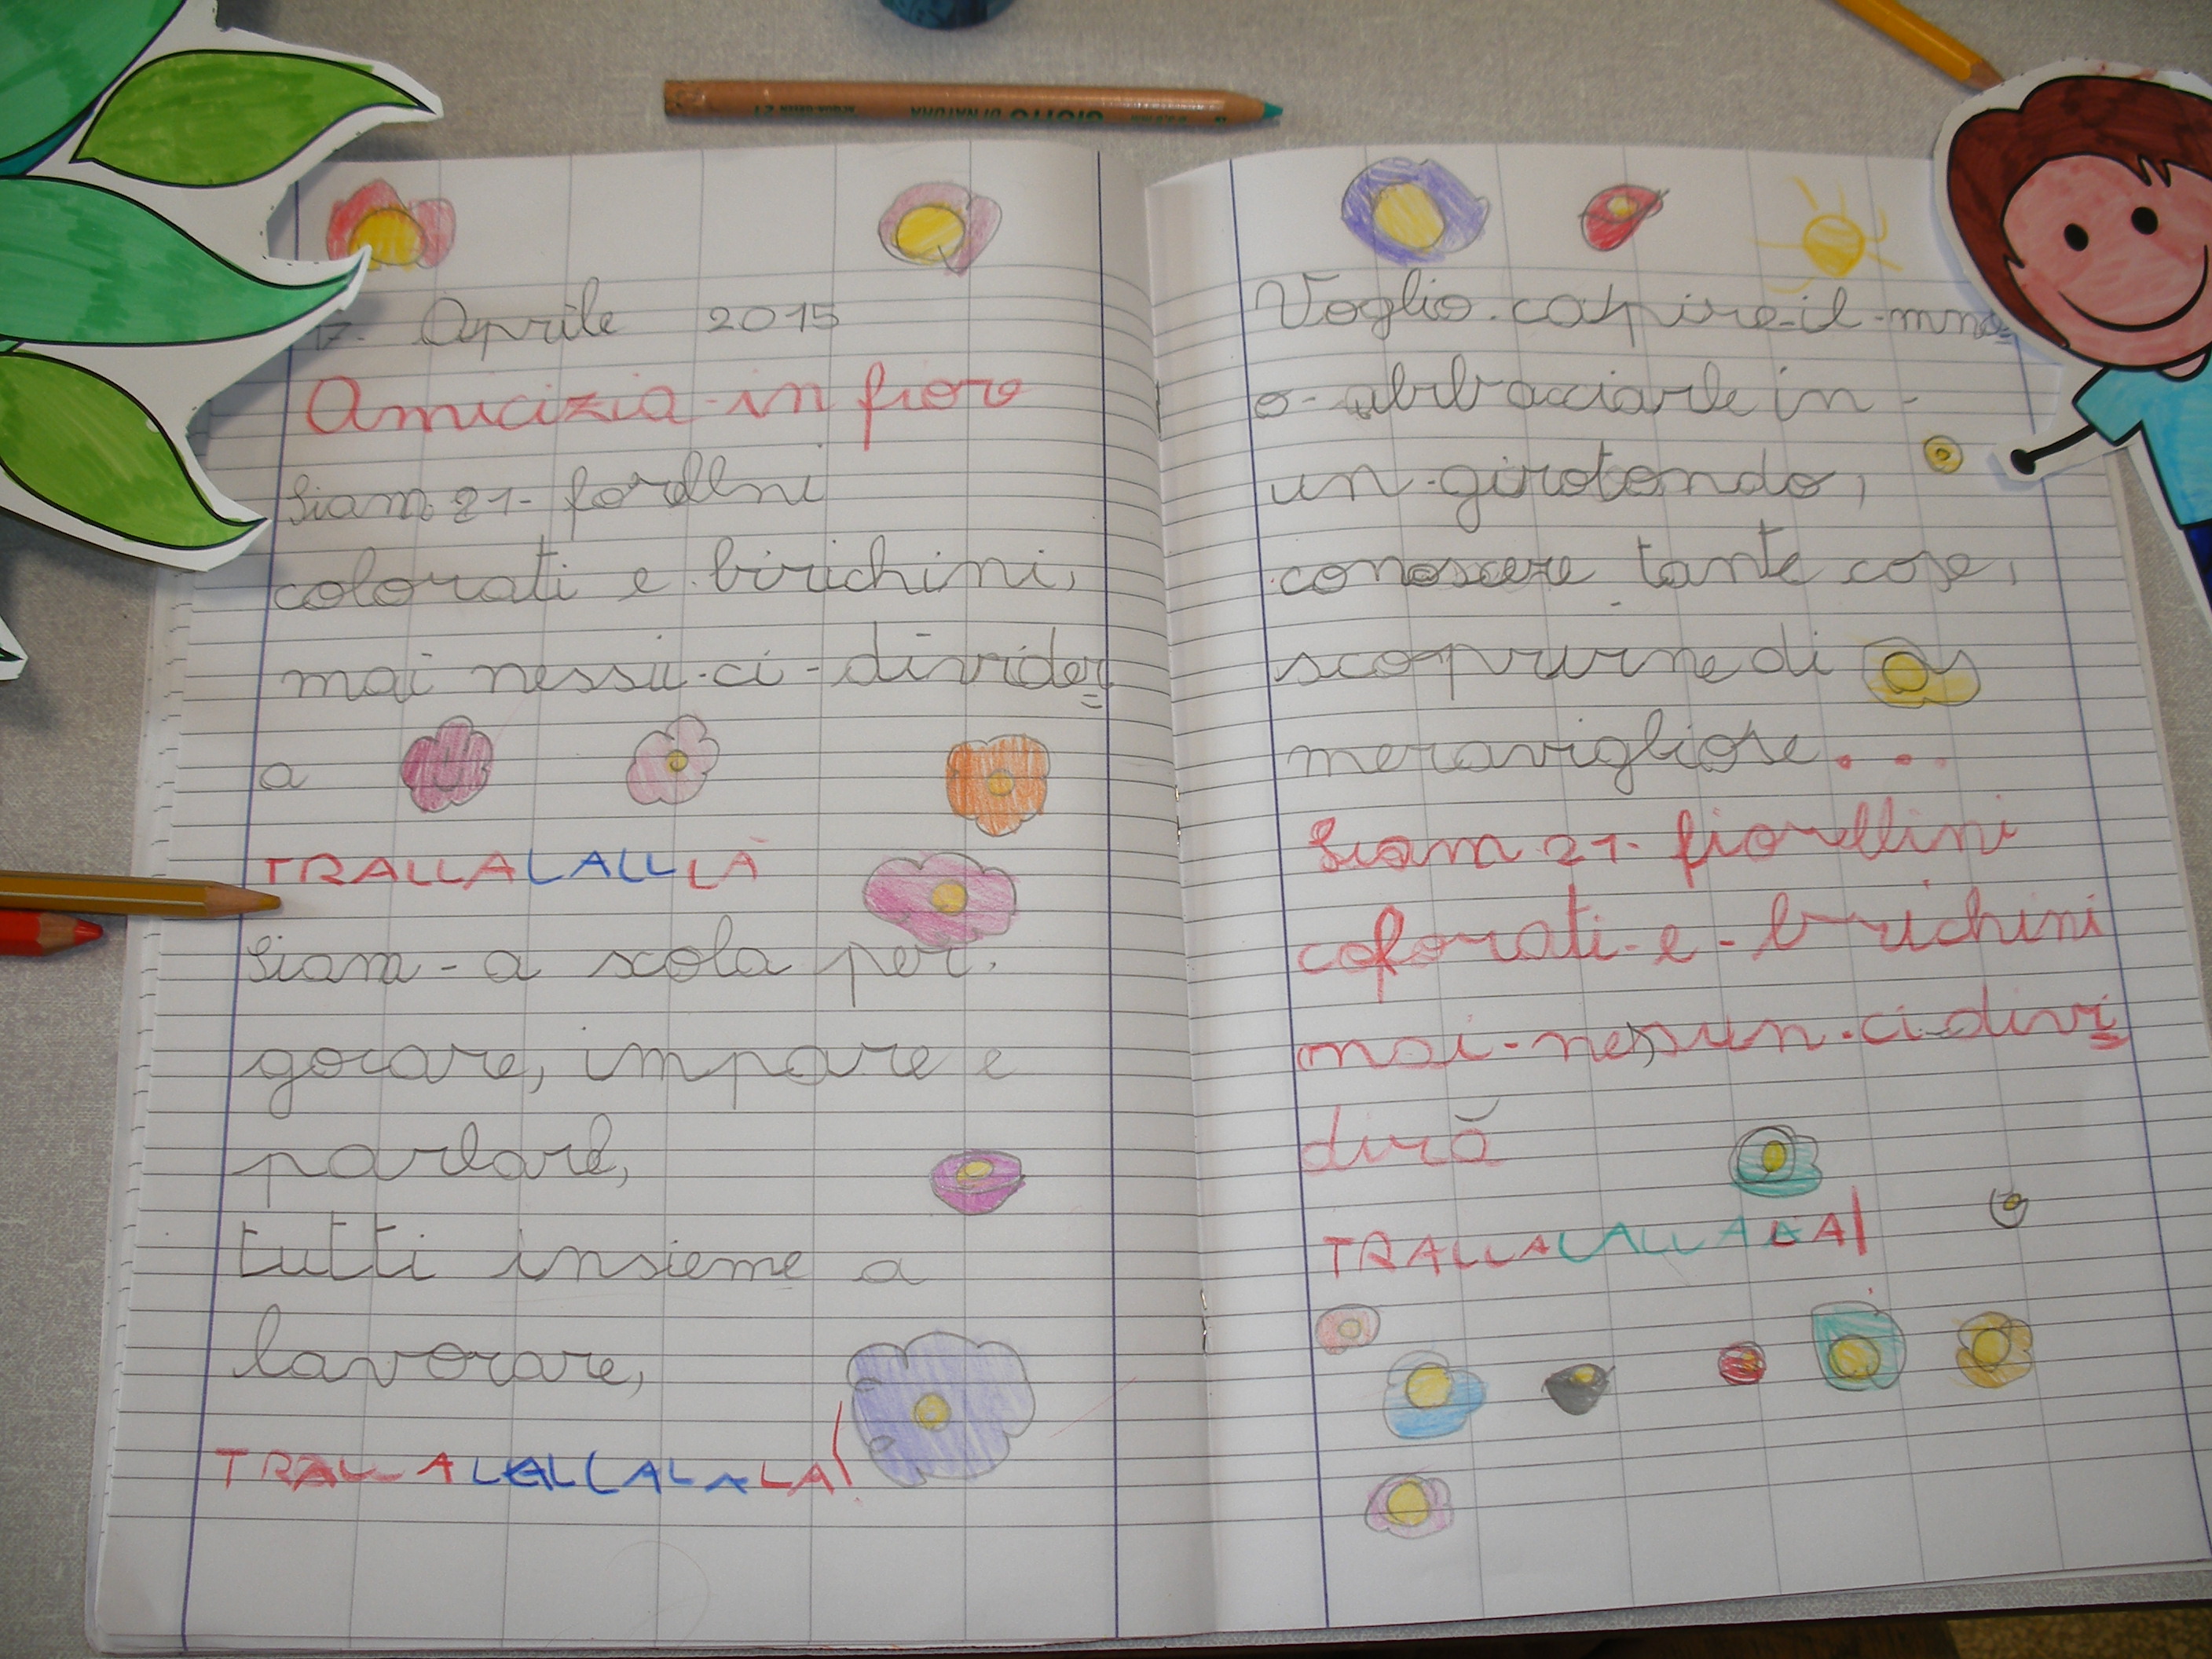 GIOTTO DI NATURA
17 Aprile 2015
Amicizia in fiore
Siam 21 forellni
colorati e birichini,
mai nessu ci divider
a
TRALLALALLLÀ
Siam a scola per
gocare, impare e
parlare,
tutti insieme a
lavorare,
TRALLALALLALALA!
Voglio capire il mno
o abbracciarle in
un girotondo,
conoscere tante cose,
scoprirne di
meravigliose...
Siam 21 fiorellini
coforati e birichini
mai nessun ci divi
dirà
TRALLALALLALA!